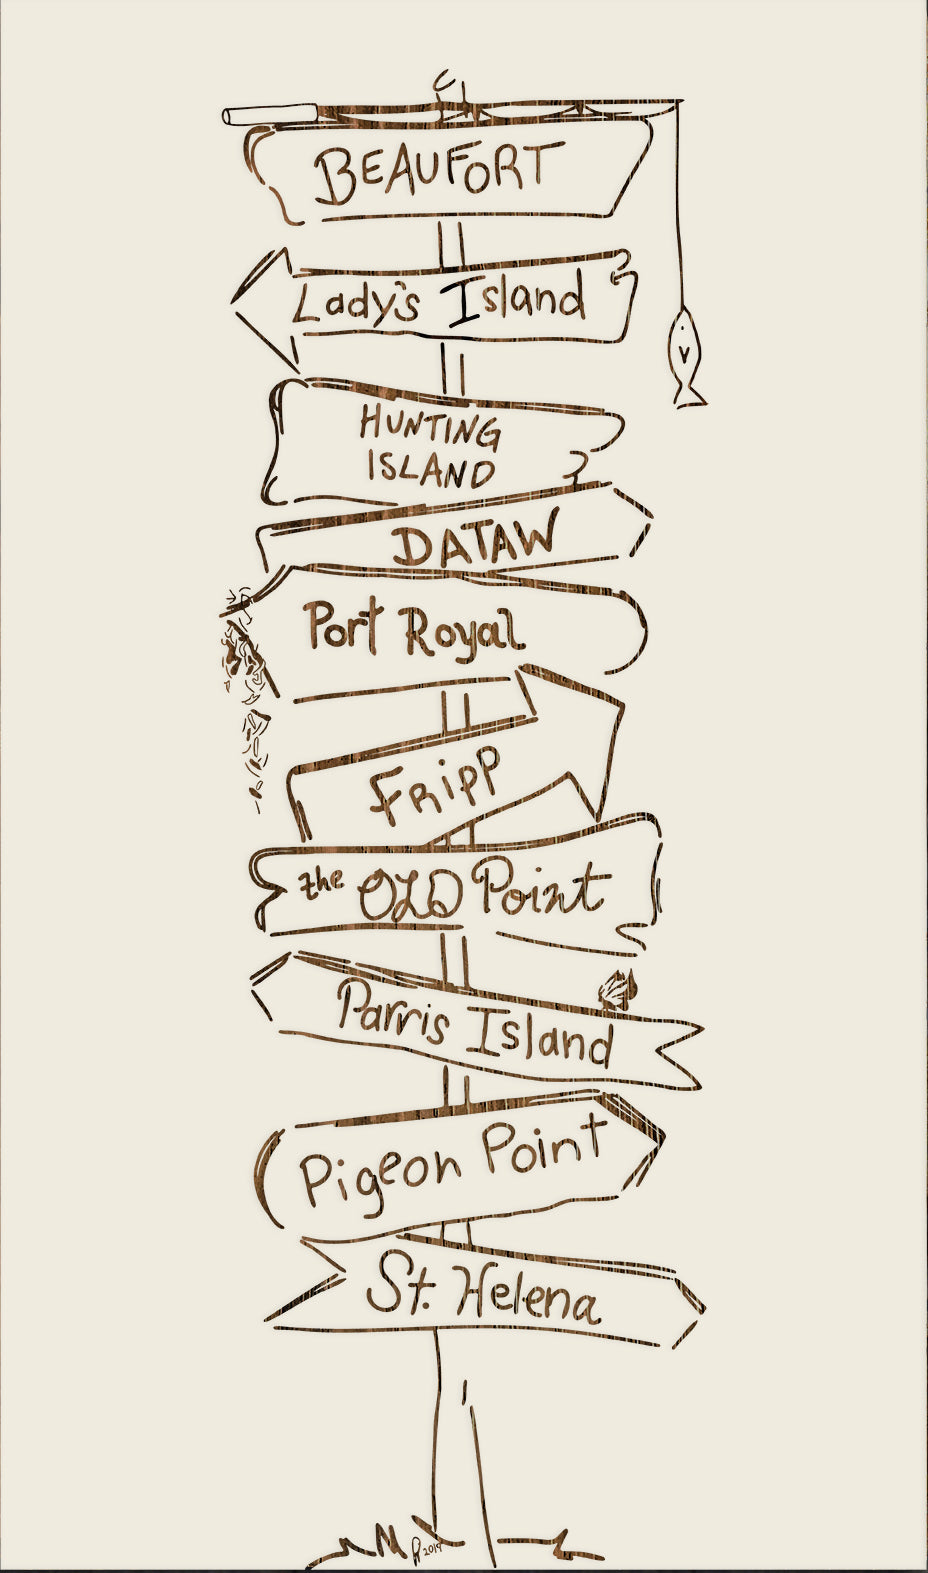 BEAUFORT
Lady's Island
HUNTING
ISLAND
DATAW
Port Royal
FRIPP
the OLD Point
Parris Island
Pigeon Point
St. Helena
2019